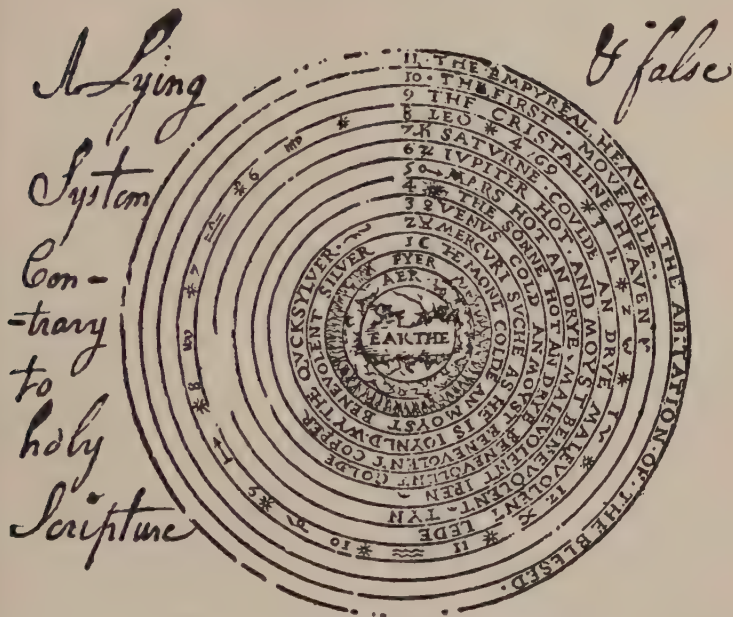 A Lying
& false
System
Con-
-trary
to
holy
Scripture
11. THE EMPYREAL HEAVEN, THE ABITATION OF THE BLESED.
10. THE FIRST MOVEABLE
9 THE CRISTALINE HEAVEN
8 LEO
7 ♄ SATVRNE COVLDE AN DRYE MALEVOLENT LEDE
6 ♃ IVPITER HOT AND MOYST BENEVOLENT TYN
5 MARS HOT AN DRYE MALEVOLENT IREN
4 THE SONNE HOT AN DRYE BENEVOLENT GOLDE
3 ♀ VENVS COLD AN MOYST BENEVOLENT COPPER
2 MERCVRI SVCHE AS HE IS IOYNLD WYTHE QVCKSYLVER
1 THE MONE COLDE AN MOYST BENEVOLENT SILVER
FYER
AER
EARTHE